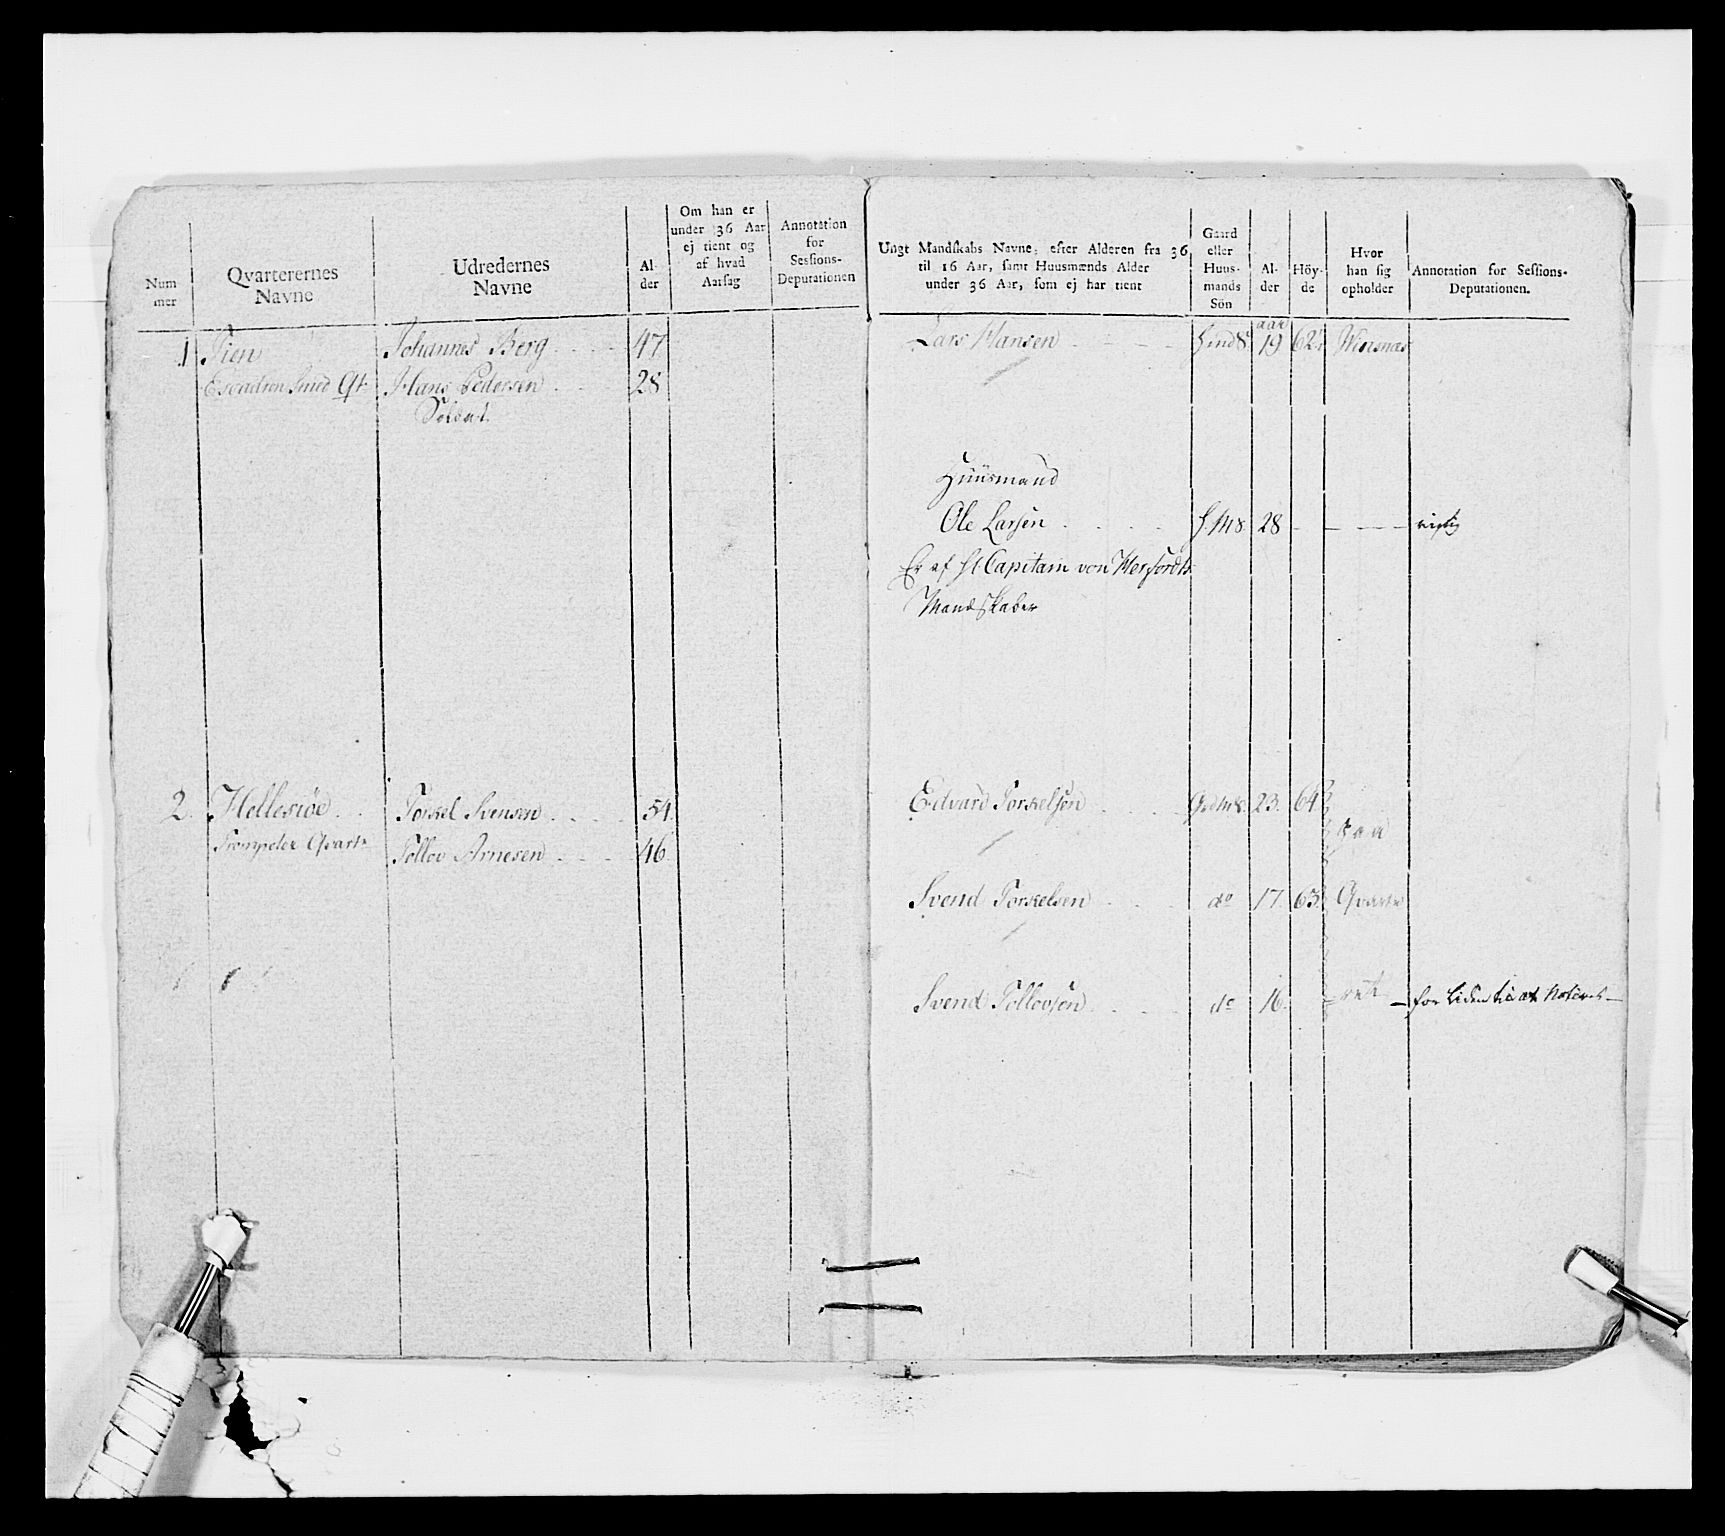 Num-
mer
Qvarterernes
Navne
Udredernes
Navne
Al-
der
Om han er
under 36 Aar
ej tient og
af hvad
Aarsag
Annotation
for
Sessions-
Deputationen
1 Tien
Johannes Berg 47
Escadron Smed Qt
Hans Pedersen 28
Soldat
2. Hellesiöe
Torkel Svensen 54.
Trompeter Qvartr
Tollov Arnesen 46.
Ungt Mandskabs Navne, efter Alderen fra 36
til 16 Aar, samt Huusmænds Alder
under 36 Aar, som ej har tient
Gaard
eller
Huus-
mands
Sön
Al-
der
Höy-
de
Hvor
han sig
opholder
Annotation for Sessions-
Deputationen.
aar
Lars Hansen 19 62
Huusmand
Ole Larsen H.M8. 28 rigtig
Er af Capitain von
Mandskaber
Edvard Torkelsen 23. 64
paa
Svend Torkelsen do 17. 63 Qvarte
Svend Tollovsen do 16. ret for Liden til at Noteret